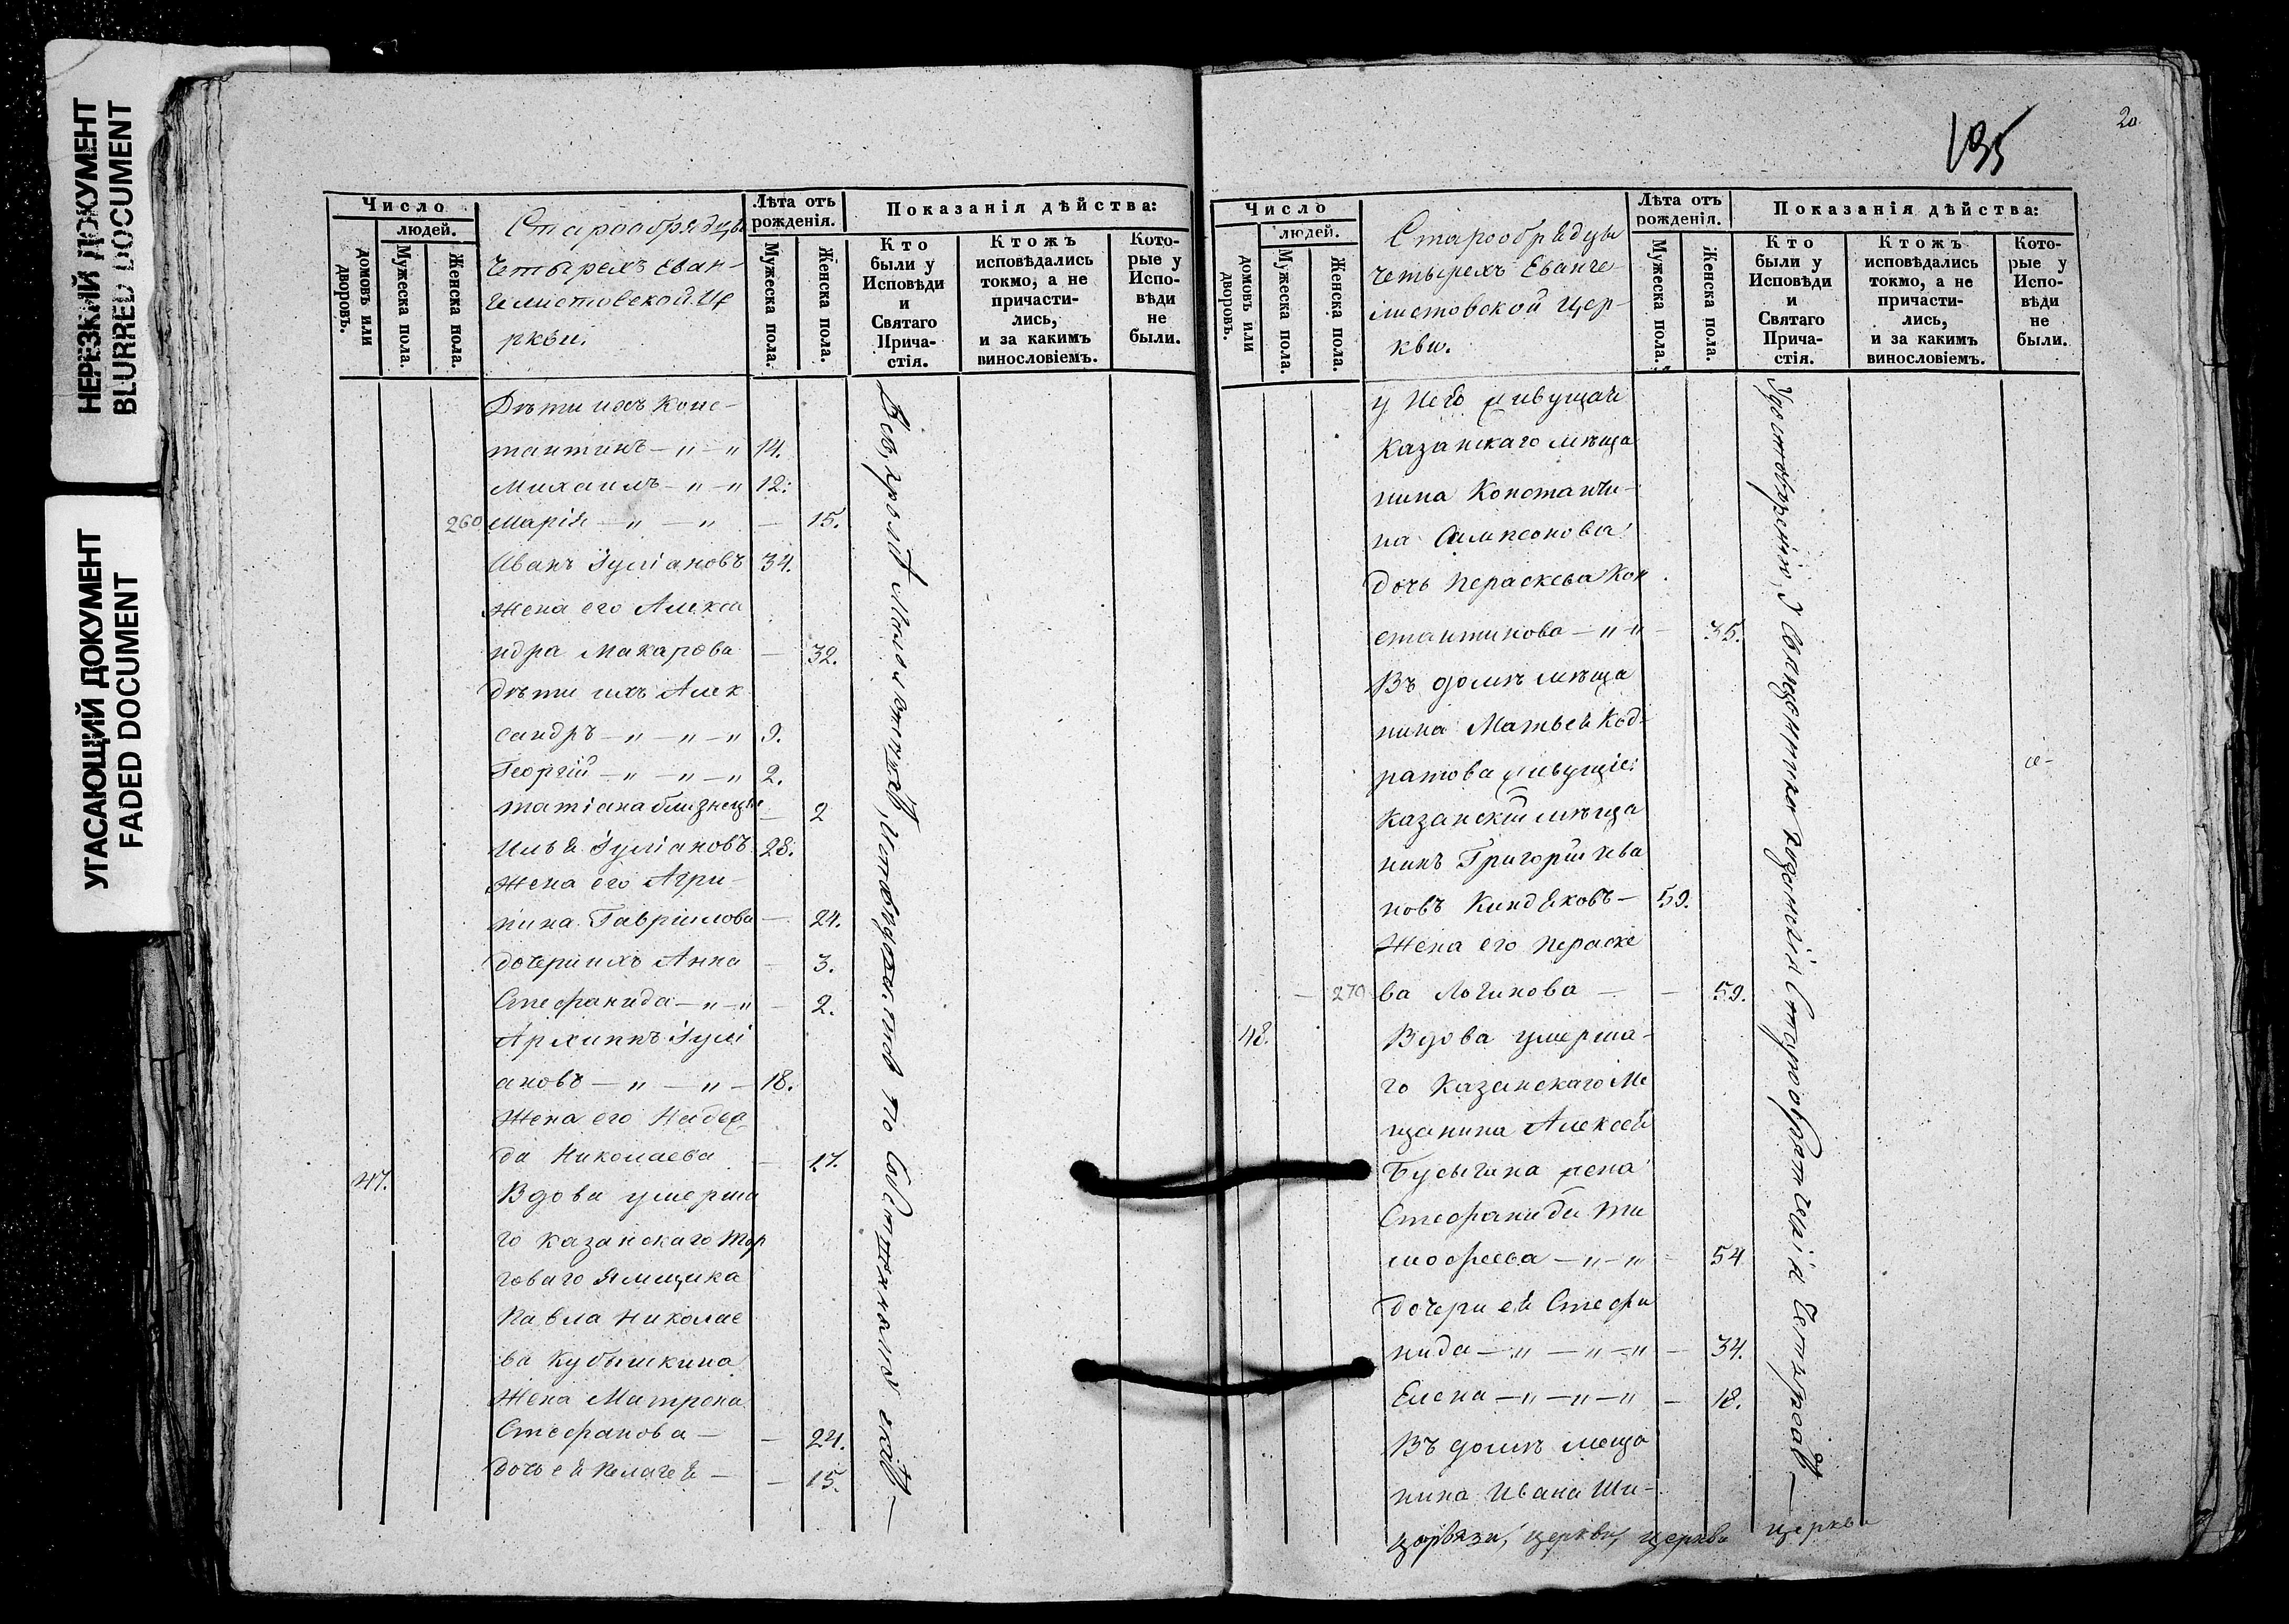 НЕРЕЗКИЙ ДОКУМЕНТ
BLURRED DOCUMENT
УГАСАЮЩИЙ ДОКУМЕНТ
FADED DOCUMENT
Число
людей.
домовъ или дворовъ.
Мужеска пола.
Женска пола.
Старообрядцы
четырехъ Еван-
гелистовской Це
ркви.
Лѣта отъ рожденія.
Мужеска пола.
Женска пола.
Показанія дѣйства:
Кто были у Исповѣди и Святаго Прича-стія.
Ктожъ исповѣдались токмо, а не причасти-лись, и за какимъ винословіемъ.
Кото-рые у Испо-вѣди не были.
Дѣти ихъ Конс-
тантинъ — „ — „ 14.
Михаилъ — „ — „ 12.
260 Марія — „ — „ — 15.
Иванъ Іуліановъ 34.
Жена его Алекса
ндра Макарова — 32.
Дѣти ихъ Алек
сандръ — „ — „ — „ 9.
Георгій — „ — „ — „ 2.
татіана близнецы — 2
Илья Іуліановъ 28.
Жена его Агри-
пина Гавріилова — 24.
дочери ихъ Анна — 3.
Стефанида — „ — „ — 2.
Архиппъ Іулі
ановъ — „ — „ — 18.
Жена его Надеж
да Николаева — 17.
47. Вдова умерша
го Казанскаго Тор
говаго Ямщика
Павла Николае
ва Кубышкина
Жена Матрена
Стефанова — — 24.
дочь ея Пелагея — — 15.
Всѣ, кромѣ
исповѣдованы по
195
20
Число
людей.
домовъ или дворовъ.
Мужеска пола.
Женска пола.
Старообрядцы
четырехъ Еванге-
листовской Цер-
кви.
Лѣта отъ рожденія.
Мужеска пола.
Женска пола.
Показанія дѣйства:
Кто были у Исповѣди и Святаго Прича-стія.
Ктожъ исповѣдались токмо, а не причасти-лись, и за какимъ винословіемъ.
Кото-рые у Испо-вѣди не были.
у него живущая
Казанскаго мѣща
нина Константи-
на Сампсонова
дочь Параскева Кон
стантинова — „ — „ — 35.
Въ домѣ мѣща
нина Матвея Код-
ратова живущіе:
Казанскій мѣща
нинъ Григорій Ива
новъ Киндяковъ — 59.
Жена его Параске
— 270 ва Логинова — — 59.
48. Вдова умерша-
го Казанскаго Ме
щанина Алексея
Бусыгина жена
Стефанида Ти
мофеева — „ — „ — 54
дочери ея Стефа
нида — „ — „ — „ — 34.
Елена — „ — „ — „ — 18.
Въ домѣ меща
нина Ивана Ши-
церкви, церкви, церкви церкви